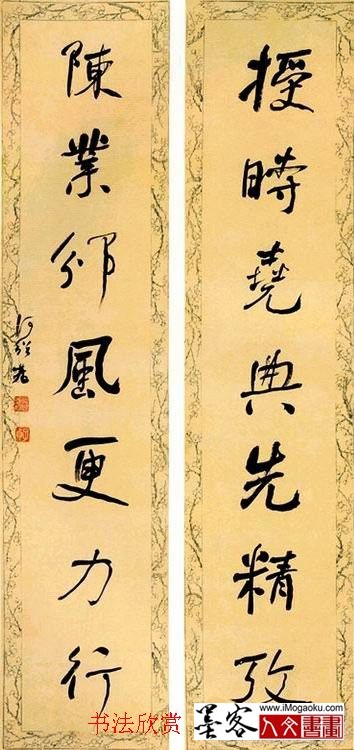 授時堯典先精攷
陳業邠風更力行
书法欣赏
墨客
www.iMogaoku.com
人文書畫